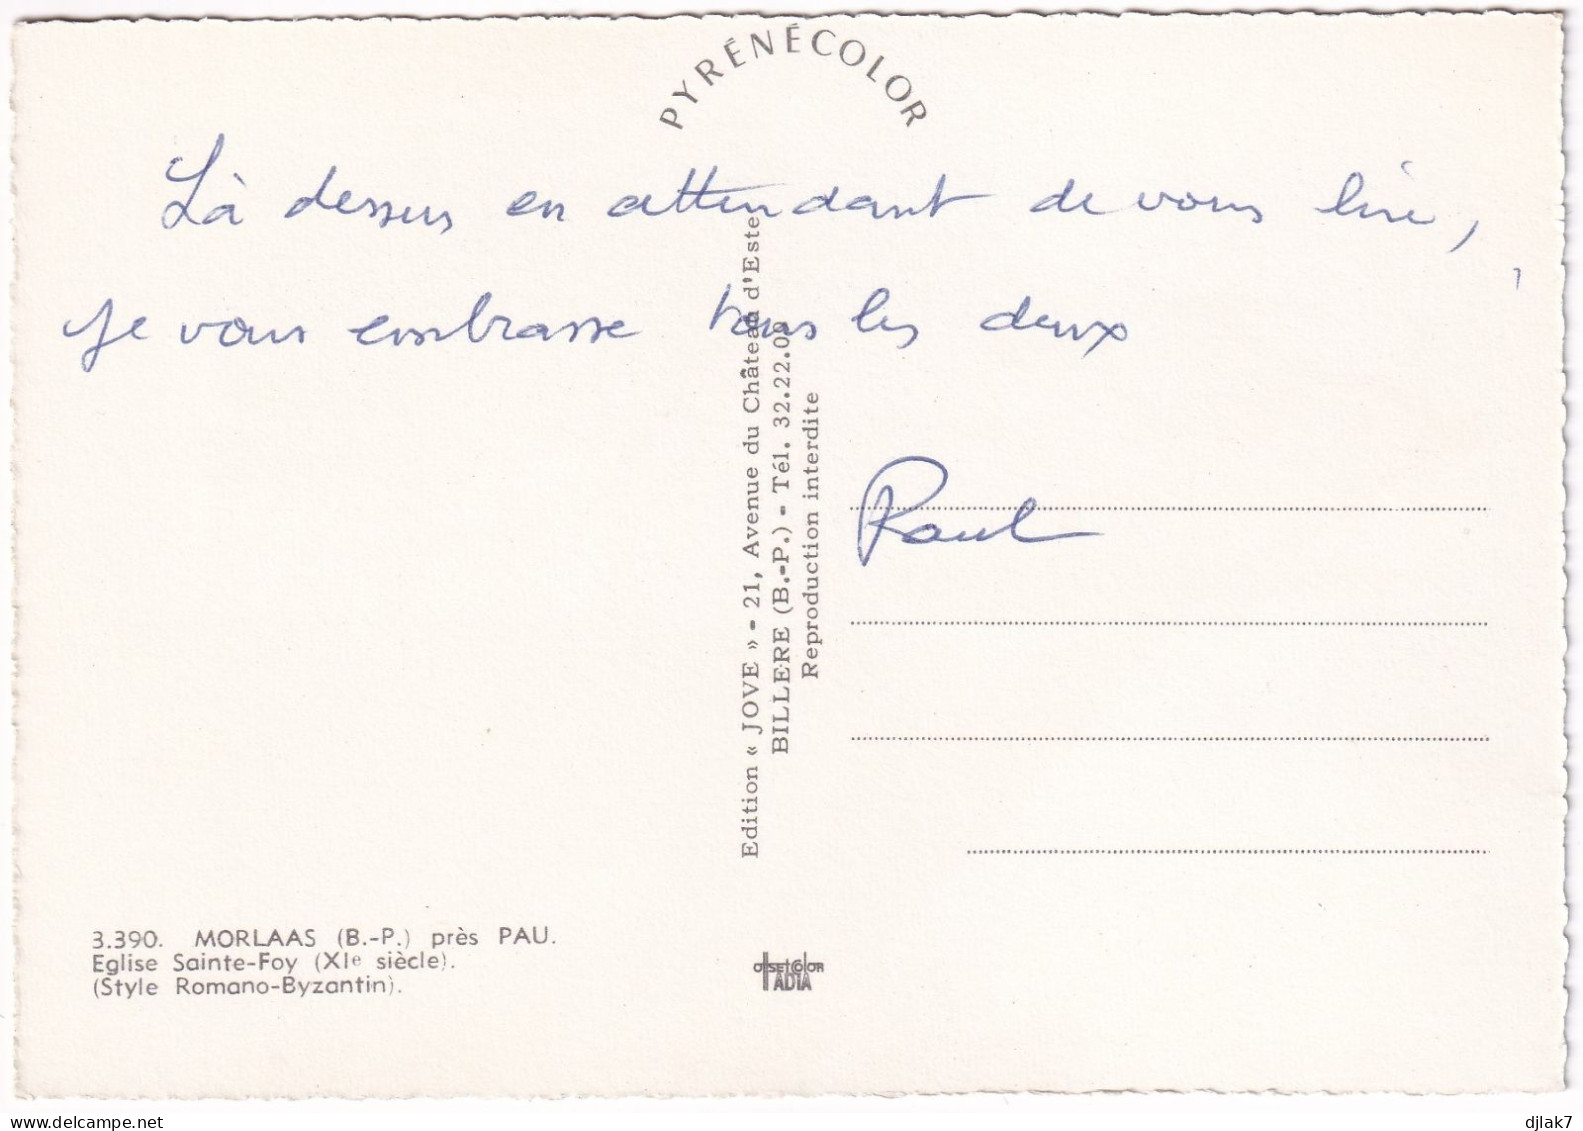 PYRÉNÉCOLOR
Là dessus en attendant de vous lire,
je vous embrasse tous les deux
Paul
Edition « JOVE » - 21, Avenue du Château d'Este
BILLERE (B.-P.) - Tél. 32.22.09
Reproduction interdite
3.390. MORLAAS (B.-P.) près PAU.
Eglise Sainte-Foy (XIe siècle).
(Style Romano-Byzantin).
OFFSET COLOR
TADIA
www.delcampe.net
djlak7